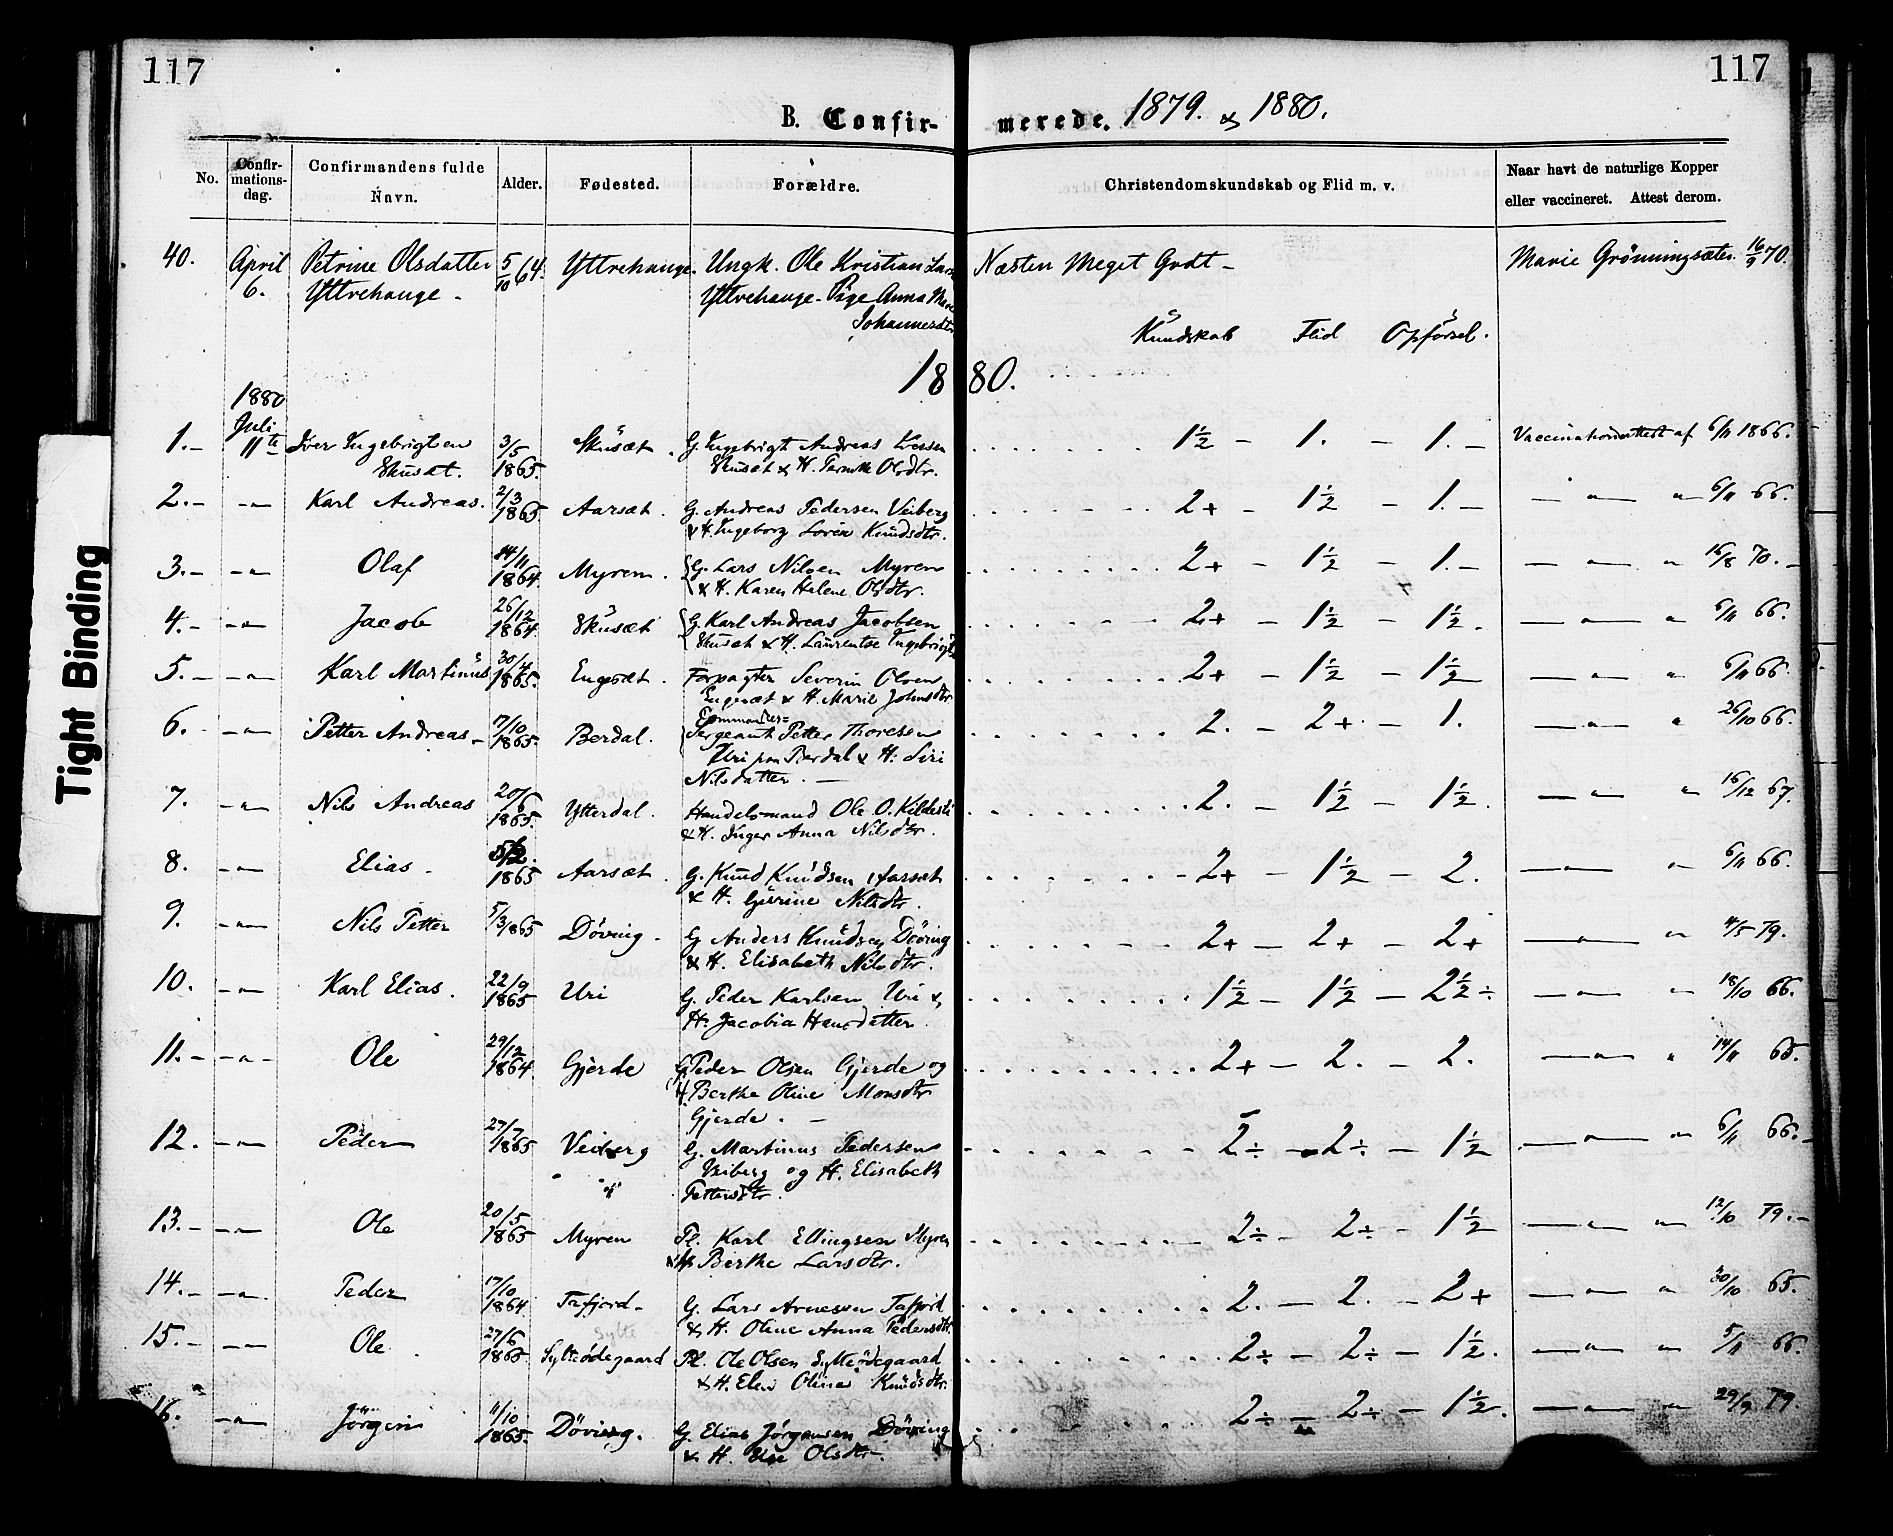 117
117
B. Confir- merede. 1879. & 1880.
No.
Confir-mations-dag.
Confirmandens fulde Navn.
Alder.
Fødested.
Forældre.
Christendomskundskab og Flid m. v.
Naar havt de naturlige Kopper eller vaccineret. Attest derom.
40. April Petrine Olsdatter 5/10 64. Yttrehauge. Ungk. Ole Kristian Lars Næsten Meget Godt - Marie Grønningsæter 16/9 70.
6. Yttrehauge. Yttrehauge - Pige Anna
Johannesdtr
Kundskab Flid Opførsel.
1880.
1880
Juli
1. 11te Iver Ingebrigtsen 3/5 Skusæt. G. Ingebrigt Andreas 1½ - 1. - 1. - Vaccinationsattest af 6/11 1866.
Skusæt. 1865. Skusæt & H. Olsdtr.
2. - " - Karl Andreas. 2/3 1865. Aarsæt. G. Andreas Pedersen Veiberg 2+ - 1½ - 1. - - " - " 6/11 66.
& H. Ingeborg Knudsdtr.
3. - " - Olaf 14/11 1864. Myren. G. Lars Nilsen Myren 2+ - 1½ - 1. - - " - " 16/8 70. -
& H. Karen Helene Olsdtr.
4. - " - Jacob 26/12 1864 Skusæt G. Karl Andreas Jacobsen 2+ - 1½ - 1½. - " - " 6/11 66.
Skusæt & H. Laurentse
5. - " - Karl Martinus 30/4 1865. Engesæt. Forpagter Severin Olsen 2+ - 1½ - 1½ - " - " 6/11 66.
Engesæt & H. Marie Johnsdtr
6. - " - Petter Andreas - 17/10 1865. Berdal. Commandeer=
Sergeant Petter Thoresen 2. - 2+. - 1. - " - " 26/10 66.
Uri paa Berdal & H. Siri
Nilsdatter. -
7. - " - Nils Andreas 20/6 1865. Ytterdal. Handelsmand Ole O. 2. - 1½ - 1½. - " - " 16/12 67.
& H. Inger Anna Nilsdtr.
8. - " - Elias. 1865 Aarsæt. G. Knud Knudsen Aarsæt 2+ - 1½ - 2. - " - " 6/11 66.
& H. Nilsdtr.
9. - " - Nils Petter 5/3 1865 Døving - G. Anders Knudsen Døving 2+ - 2+ - 2+ - " - " 4/5 79.
& H. Elisabeth Nilsdtr.
10. - " - Karl Elias. 22/9 1865 Uri G. Peder Karlsen Uri & 1½ - 1½ - 2½÷ - " - " 18/10 66.
H. Jacobia Hansdatter.
11. - " - Ole 29/12 1864 Gjerde G. Peder Olsen Gjerde og 2+ - 2. - 2. - " - " 14/11 65.
H. Berthe Oline Monsdtr
Gjerde. -
12. - " - Peder 27/7 1865 Veiberg G. Martinus Pedersen 2÷ - 2÷ - 1½ - " - " 6/11 66. -
Veiberg og H. Elisabeth
Pettersdtr.
13. - " - Ole 20/5 1865 Myren Pl. Karl Ellingsen Myren 2÷ - 2÷ - 1½ - " - " 12/10 79. -
& H. Berthe Larsdtr.
14. - " - Peder 17/10 1864. Tafjord - G. Lars Arnesen Tafjord 2. - 2. - 2+ - " - " 30/10 65.
& H. Oline Anna Pedersdtr.
Sylte
15. - " - Ole 27/6 1865 Sylteødegaard Pl. Ole Olsen Sylteødegaard 2÷ - 2÷ - 1½. - " - " 5/11 66.
& H. Elen Oline Knudsdtr.
16. - " - Jørgen 11/10 1865. Døving. G. Elias Jørgensen Døving 2÷ - 2÷ - 1½. - " - " 29/9 79.
& H. Else Olsdtr.
Tight Binding